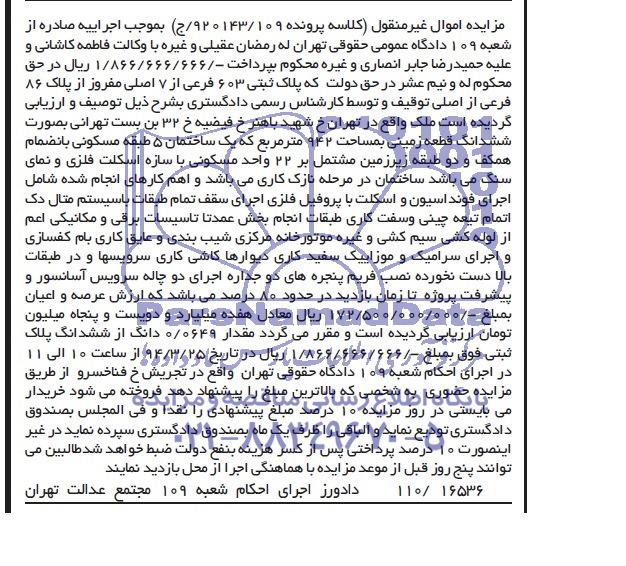 مزایده اموال غیرمنقول (کلاسه پرونده ۹۲۰۱۴۳/۱۰۹/ج) بموجب اجراییه صادره از
شعبه ۱۰۹ دادگاه عمومی حقوقی تهران له رمضان عقیلی و غیره با وکالت فاطمه کاشانی و
علیه حمیدرضا جابر انصاری و غیره محکوم بپرداخت -/۱/۸۶۶/۶۶۶/۶۶۶ ریال در حق
محکوم له و نیم عشر در حق دولت که پلاک ثبتی ۶۰۳ فرعی از ۷ اصلی مفروز از پلاک ۸۶
فرعی از اصلی توقیف و توسط کارشناس رسمی دادگستری بشرح ذیل توصیف و ارزیابی
گردیده است ملک واقع در تهران خ شهید باهنر خ فیضیه خ ۳۲ بن بست تهرانی بصورت
ششدانگ قطعه زمینی بمساحت ۹۴۲ مترمربع که یک ساختمان ۵ طبقه مسکونی بانضمام
همکف و دو طبقه زیرزمین مشتمل بر ۲۲ واحد مسکونی با سازه اسکلت فلزی و نمای
سنگ می باشد ساختمان در مرحله نازک کاری می باشد و اهم کارهای انجام شده شامل
اجرای فونداسیون و اسکلت با پروفیل فلزی اجرای سقف تمام طبقات باسیستم متال دک
اتمام تیغه چینی وسفت کاری طبقات انجام بخش عمدتا تاسیسات برقی و مکانیکی اعم
از لوله کشی سیم کشی و غیره موتورخانه مرکزی شیب بندی و عایق کاری بام کفسازی
و اجرای سرامیک و موزاییک سفید کاری دیوارها کاشی کاری سرویسها و در طبقات
بالا دست نخورده نصب فریم پنجره های دو جداره اجرای دو چاله سرویس آسانسور و
پیشرفت پروژه تا زمان بازدید در حدود ۸۰ درصد می باشد که ارزش عرصه و اعیان
بمبلغ -/۱۷۲/۵۰۰/۰۰۰/۰۰۰ ریال معادل هفده میلیارد و دویست و پنجاه میلیون
تومان ارزیابی گردیده است و مقرر می گردد مقدار ۰/۰۶۴۹ دانگ از ششدانگ پلاک
ثبتی فوق بمبلغ -/۱/۸۶۶/۶۶۶/۶۶۶ ریال در تاریخ ۹۴/۳/۲۵ از ساعت ۱۰ الی ۱۱
در اجرای احکام شعبه ۱۰۹ دادگاه حقوقی تهران واقع در تجریش خ فناخسرو از طریق
مزایده حضوری به شخصی که بالاترین مبلغ را پیشنهاد دهد فروخته می شود خریدار
می بایستی در روز مزایده ۱۰ درصد مبلغ پیشنهادی را نقدا و فی المجلس بصندوق
دادگستری تودیع نماید و الباقی را ظرف یک ماه بصندوق دادگستری سپرده نماید در غیر
اینصورت ۱۰ درصد پرداختی پس از کسر هزینه بنفع دولت ضبط خواهد شدطالبین می
توانند پنج روز قبل از موعد مزایده با هماهنگی اجرا از محل بازدید نمایند
۱۱۰/ ۱۶۵۳۶ دادورز اجرای احکام شعبه ۱۰۹ مجتمع عدالت تهران
ParsNamadData
پایگاه اطلاع رسانی مناقصه و مزایده
۰۲۱-۸۸۳۴۹۶۷۰-۵